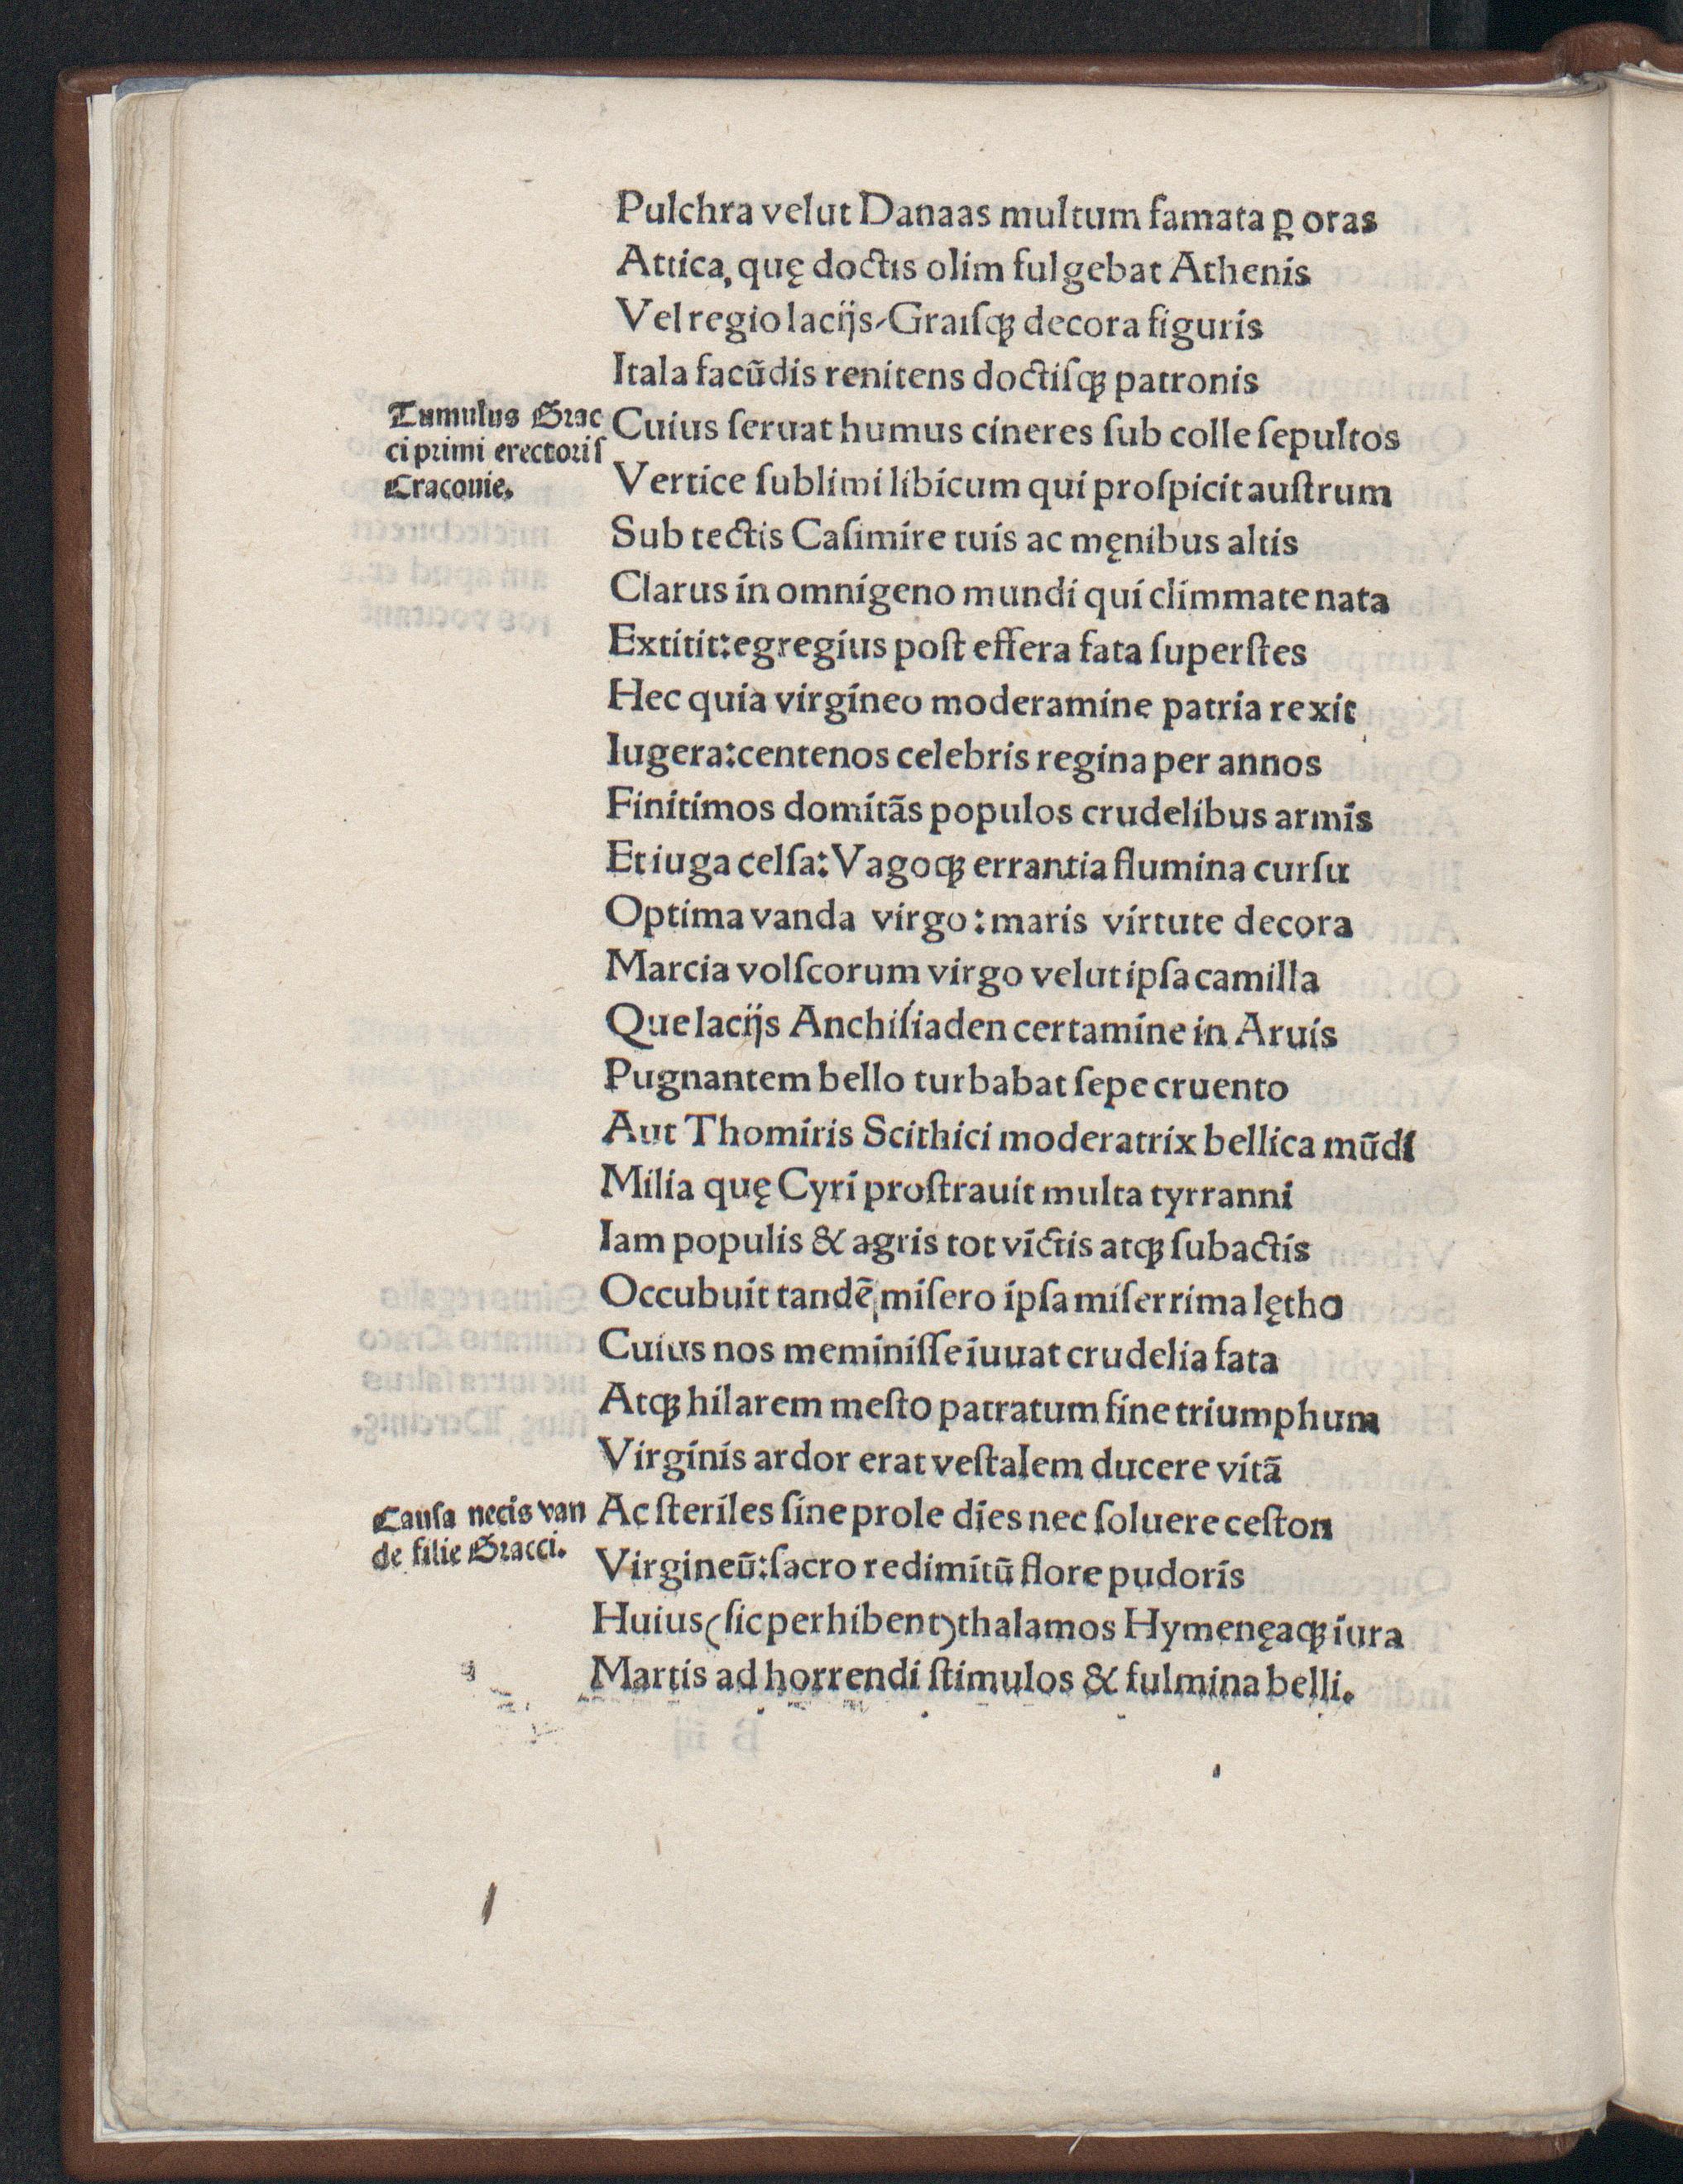 Pulchra velut Danaas multum famata ꝑ oras
Attica, quę doctis olim fulgebat Athenis
Vel regio lacijs-Graiſqꝫ decora figuris
Itala facũdis renitens doctiſqꝫ patronis
Tumulus Grac
ci primi erectoriſ
Craconie.
Cuius ſeruat humus cineres ſub colle ſepultos
Vertice ſublimi libicum qui proſpicit auſtrum
Sub tectis Caſimire tuis ac męnibus altis
Clarus in omnigeno mundi qui climmate nata
Extitit:egregius poſt effera fata ſuperſtes
Hec quia virgineo moderamine patria rexit
Iugera:centenos celebris regina per annos
Finitimos domitãs populos crudelibus armis
Et iuga celſa:Vagoqꝫ errantia flumina curſu
Optima vanda virgo:maris virtute decora
Marcia volſcorum virgo velut ipſa camilla
Que lacijs Anchiſiaden certamine in Aruis
Pugnantem bello turbabat ſepe cruento
Aut Thomiris Scithici moderatrix bellica mũdi
Milia quę Cyri proſtrauit multa tyrranni
Iam populis & agris tot victis atqꝫ ſubactis
Occubuit tandẽ miſero ipſa miſerrima lętho
Cuius nos meminiſſe iuuat crudelia fata
Atqꝫ hilarem meſto patratum fine triumphum
Virginis ardor erat veſtalem ducere vitã
Cauſa necis van
de filie Gracci.
Ac ſteriles ſine prole dies nec ſoluere ceſton
Virgineũ:ſacro redimitũ flore pudoris
Huius (ſic perhibent) thalamos Hymenęaqꝫ iura
Martis ad horrendi ſtimulos & fulmina belli.